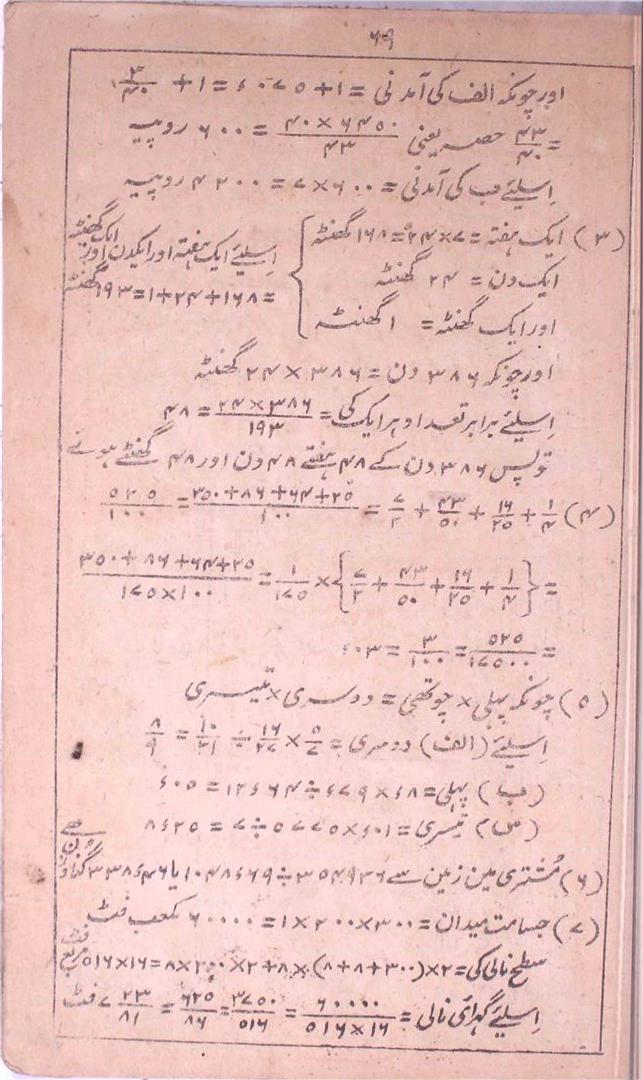 ۶۹
اور چونکہ الف کی آمدنی = ۱+۵۷۰ء = ۱ + ۳/۴۰
= ۴۳/۴۰ حصہ یعنی ۴۰×۶۴۵۰/۴۳ = ۶۰۰ روپیہ
اِسلیئے ب کی آمدنی = ۷×۶۰۰ = ۴۲۰۰ روپیہ
(۳) ایک ہفتہ = ۷×۲۴ = ۱۶۸ گھنٹہ
ایک دن = ۲۴ گھنٹہ
اور ایک گھنٹہ = ۱ گھنٹہ
اِسلیئے ایک ہفتہ اور ایکدن اور ایک گھنٹہ
= ۱۶۸+۲۴+۱ = ۱۹۳ گھنٹہ
اور چونکہ ۳۸۶ دن = ۳۸۶ × ۲۴ گھنٹہ
اِسلیئے برابر تعداد ہر ایک کی = ۲۴×۳۸۶/۱۹۳ = ۴۸
تو پس ۳۸۶ دن کے ۴۸ ہفتے ۴۸ دن اور ۴۸ گھنٹے ہونے
(۴) ۱/۴ + ۱۶/۲۵ + ۴۳/۵۰ + ۷/۲ = ۲۵+۶۴+۸۶+۳۵۰/۱۰۰ = ۵۲۵/۱۰۰
= {۱/۴ + ۱۶/۲۵ + ۴۳/۵۰ + ۷/۲} × ۱/۱۷۵ = ۲۵+۶۴+۸۶+۳۵۰/۱۰۰×۱۷۵
= ۵۲۵/۱۷۵۰۰ = ۳/۱۰۰ = ۰۳ء
(۵) چونکہ پہلی × چوتھی = دوسری × تیسری
اِسلیئے (الف) دوسری = ۵/۷ × ۱۶/۲۷ ÷ ۱۰/۲۱ = ۸/۹
(ب) پہلی = ۸ء × ۷۹ء ÷ ۱۲ء۶۴ = ۰۵ء
تیسری = ۰۱ء × ۵۷۷۵ ÷ ۷ = ۸ء۲۵
(۶) مُشتری مین زمین سے ۳۵۴۹۳۶ ÷ ۱۰۴۸ء۶۹ یا ۳۳۸ء۴۶ گنا
(۷) جسامت میدان = ۳۰۰×۲۰۰×۱ = ۶۰۰۰۰ مکعب فٹ
سطح نالی کی = ۲×(۳۰۰+۸+۸)×۸+۲×۲۰۰×۸ = ۱۶×۵۱۶ مربع فٹ
اِسلیئے گہرائی نالی = ۶۰۰۰۰/۱۶×۵۱۶ = ۳۷۵۰/۵۱۶ = ۶۲۵/۸۶ = ۷ ۲۳/۸۶ فٹ